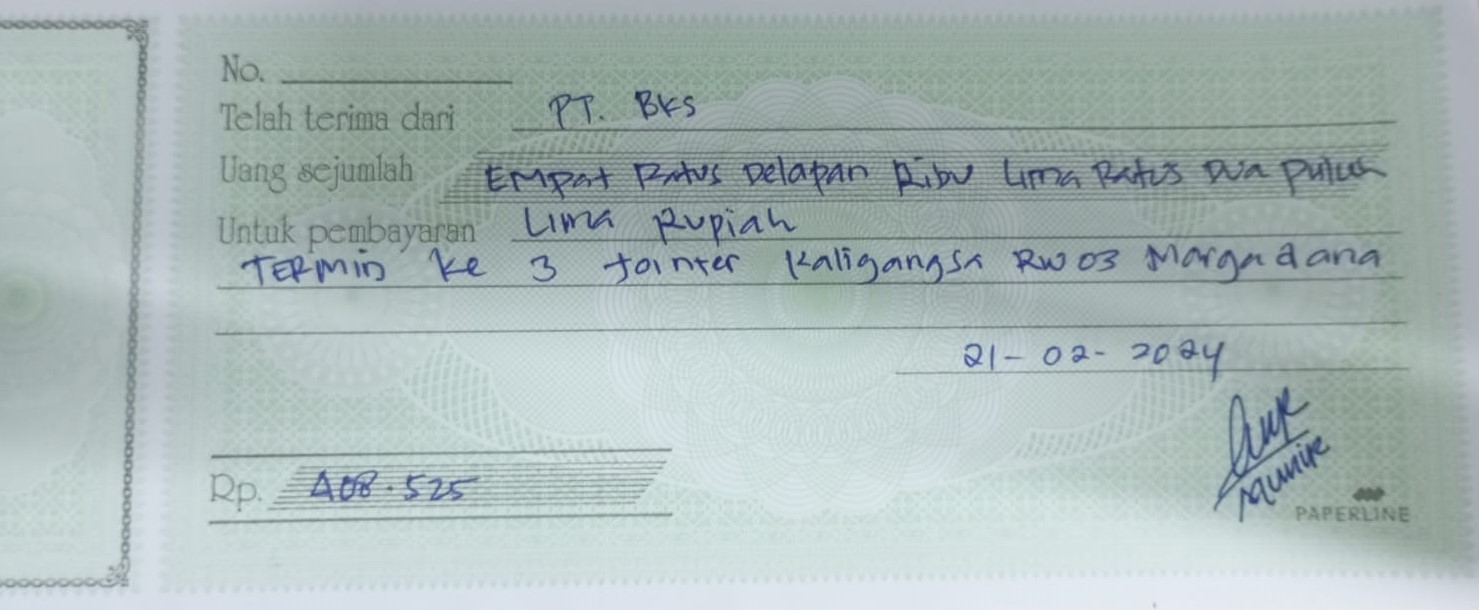 No.
Telah terima dari PT. BKS
Uang sejumlah Empat Ratus Delapan Ribu Lima Ratus Dua Puluh
Untuk pembayaran Lima Rupiah
TERMIN ke 3 Jointer Kaligangsa RW 03 Margadana
21-02-2024
Rp. 408.525
PAPERLINE